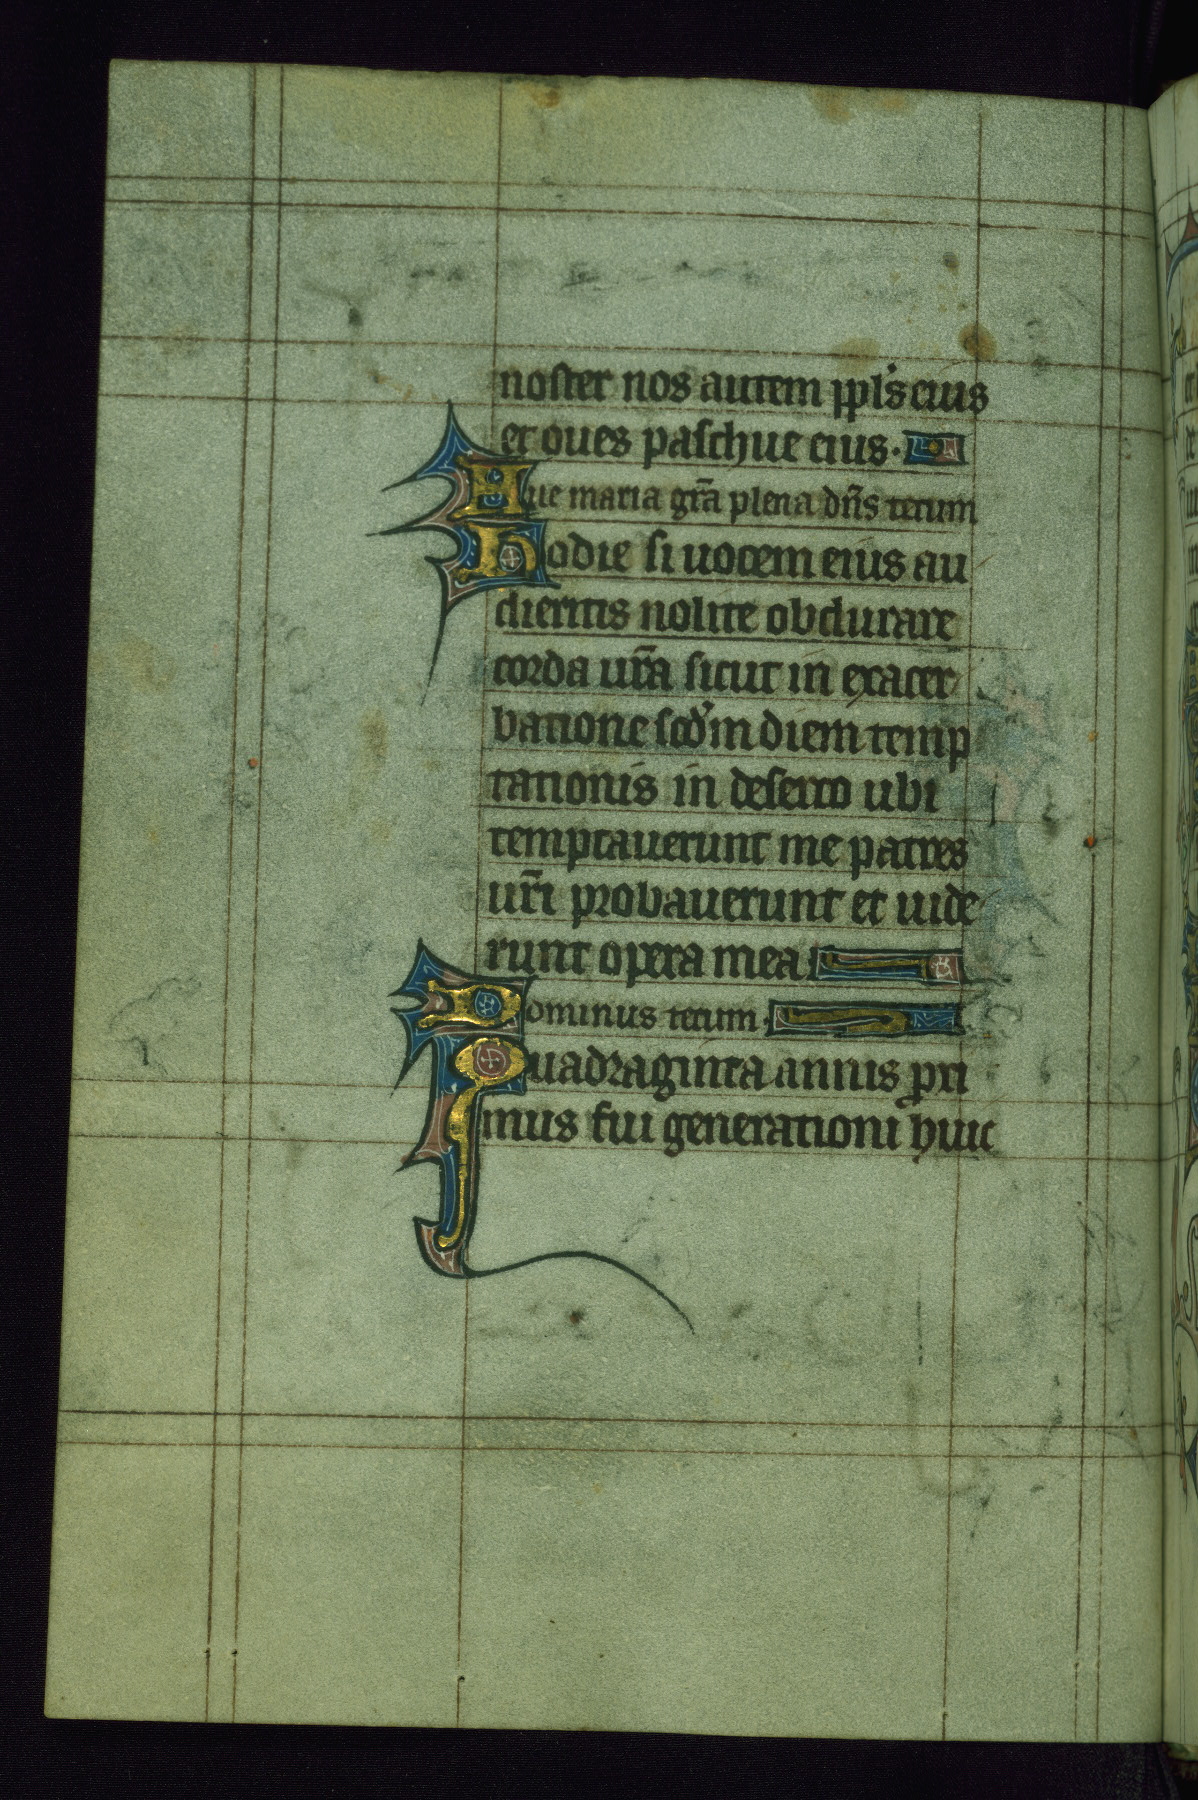 noster nos autem ppl's eius
et oues paschue eius.
Aue maria gr̃a plena dñs tecum
Hodie si uocem eius au
dieritis nolite obdurare
corda ur̃a sicut in exacer
batione scd'm diem temp
tationis in deserto ubi
temptauerunt me patres
ur̃i probauerunt et uide
runt opera mea
Dominus tecum.
Quadraginta annis proxi
mus fui generationi huic